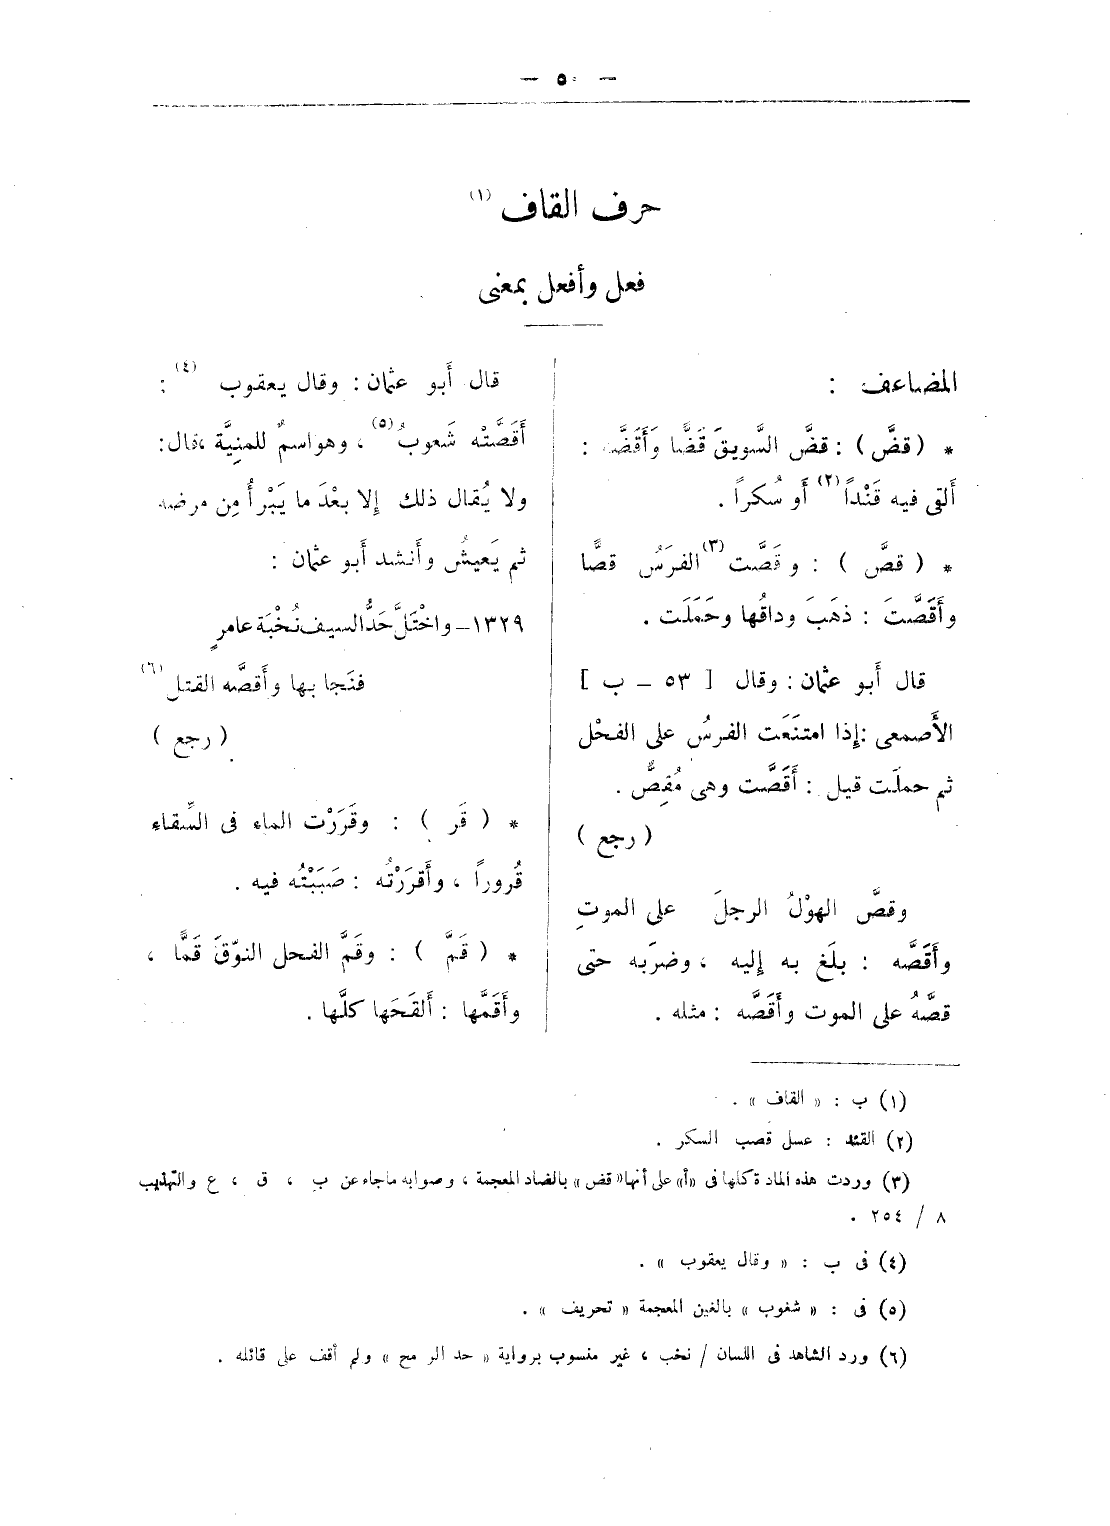 — ٥٠ —
حرف القاف (١)
فعل وأفعل بمعنى
المضاعف :
* ( قضَّ ) : قضَّ السَّويقَ قَضًّا وَأَقَضَّه :
أَلقى فيه قَنْداً(٢) أَو سُكراً .
* ( قصَّ ) : وقَصَّت(٣) الفرَسُ قصًّا
وأَقَصَّتَ : ذهَبَ وداقُها وحَمَلَت .
قال أَبو عثمان : وقال [ ٥٣ – ب ]
الأَصمعى : إِذا امتنَعَت الفرسُ على الفحْل
ثم حملَت قيل : أَقَصَّت وهى مُقِصٌّ .
( رجع )
وقصَّ الهوْلُ الرجلَ على الموتِ
وأَقَصَّه : بلَغ به إِليه ، وضرَبه حتى
قصَّهُ على الموت وأَقَصَّه : مثله .
قال أَبو عثمان : وقال يعقوب (٤) :
أَقَصَّتْه شَعوبُ(٥) ، وهواسمٌ للمنِيَّة ،قال:
ولا يُقال ذلك إِلا بعْدَ ما يَبْرأُ مِن مرضه
ثم يَعيشُ وأَنشد أَبو عثمان :
١٣٢٩– واخْتَلَّ حَدُّ السيف نُخْبَة عامرٍ
فنَجا بها وأَقصَّه القتل (٦)
( رجع )
* ( قَر ) : وقَرَرْت الماء فى السِّقاء
قُروراً ، وأَقررْتُه : صَبَبْتُه فيه .
* ( قَمَّ ) : وقَمَّ الفحل النوّقَ قَمًّا ،
وأَقَمَّها : أَلقَحَها كلَّها .
(١) ب : « القاف » .
(٢) القند : عسل قصب السكر .
(٣) وردت هذه المادة كلها فى «أ» على أنها « قض » بالضاد المعجمة ، وصوابه ماجاء عن ب ، ق ، ع والتهذيب
٨ / ٢٥٤ .
(٤) فى ب : « وقال يعقوب » .
(٥) فى : « شغوب » بالغين المعجمة « تحريف » .
(٦) ورد الشاهد فى اللسان / نخب ، غير منسوب برواية « حد الرمح » ولم أقف على قائله .